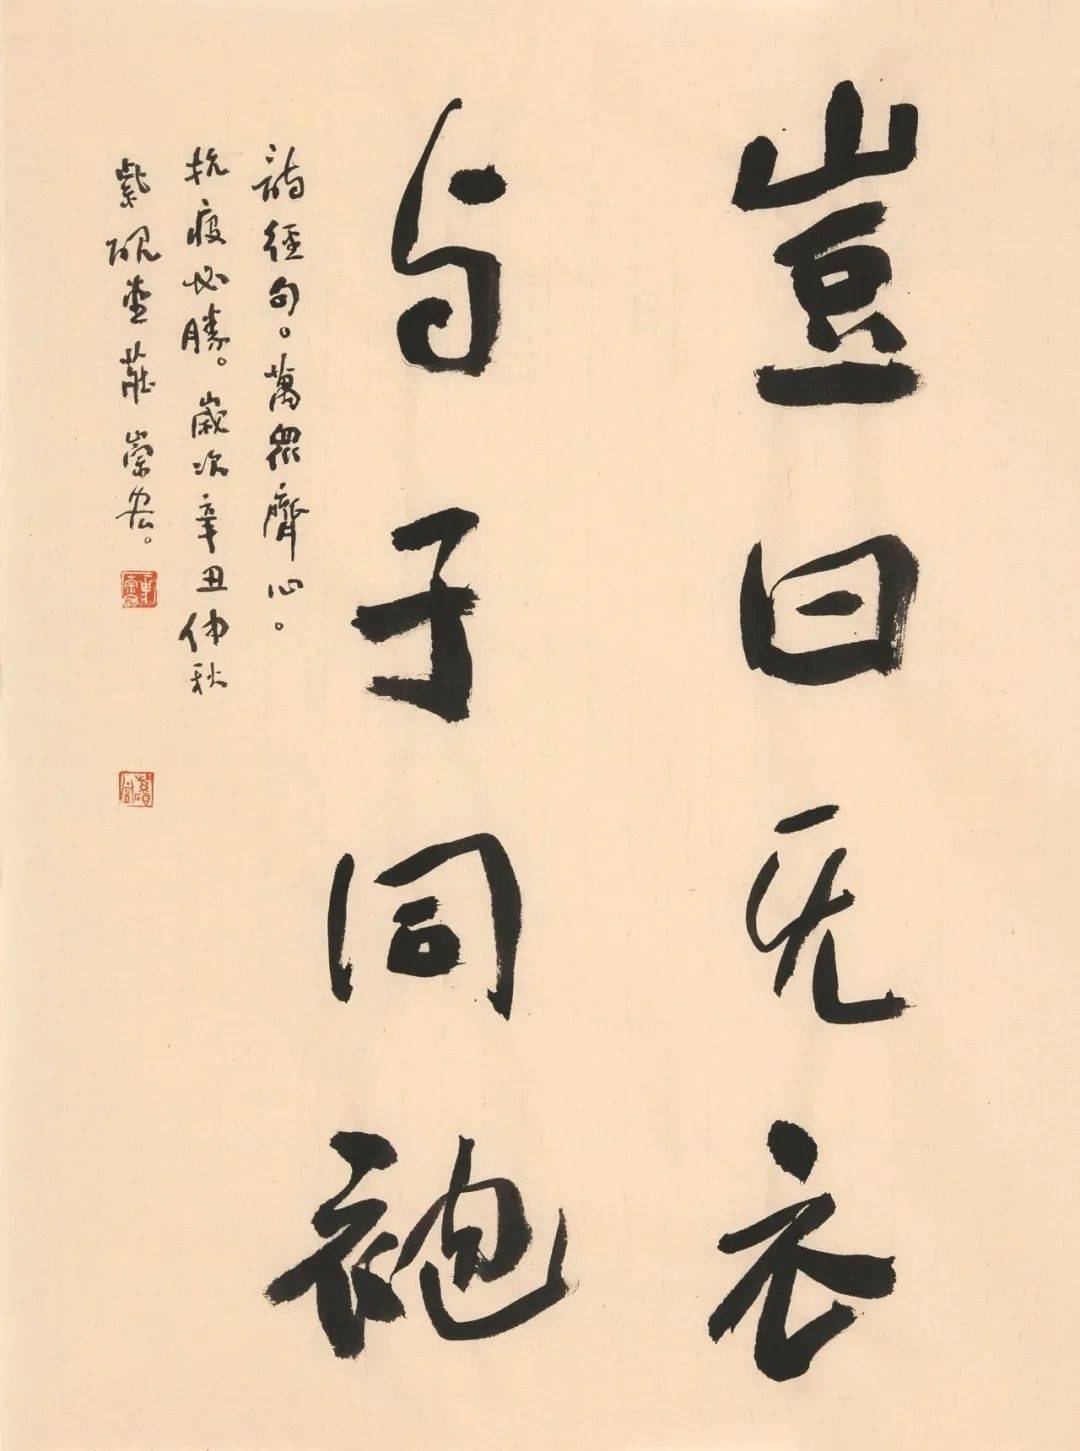 豈曰无衣
与子同袍
詩經句。萬眾齊心。
抗疫必勝。歲次辛丑仲秋
紫硯堂莊崇宏。